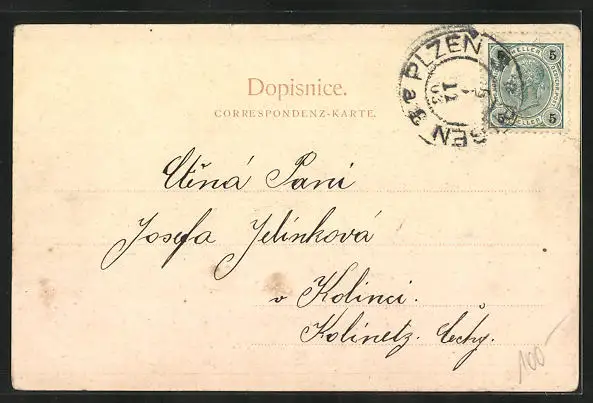 Dopisnice.
CORRESPONDENZ-KARTE.
PLZEN
5 HELLER 5
5 HELLER 5
Ctěná Paní
Josefa Jelínková
v Kolinci.
Kolinetz. Čechy.
100